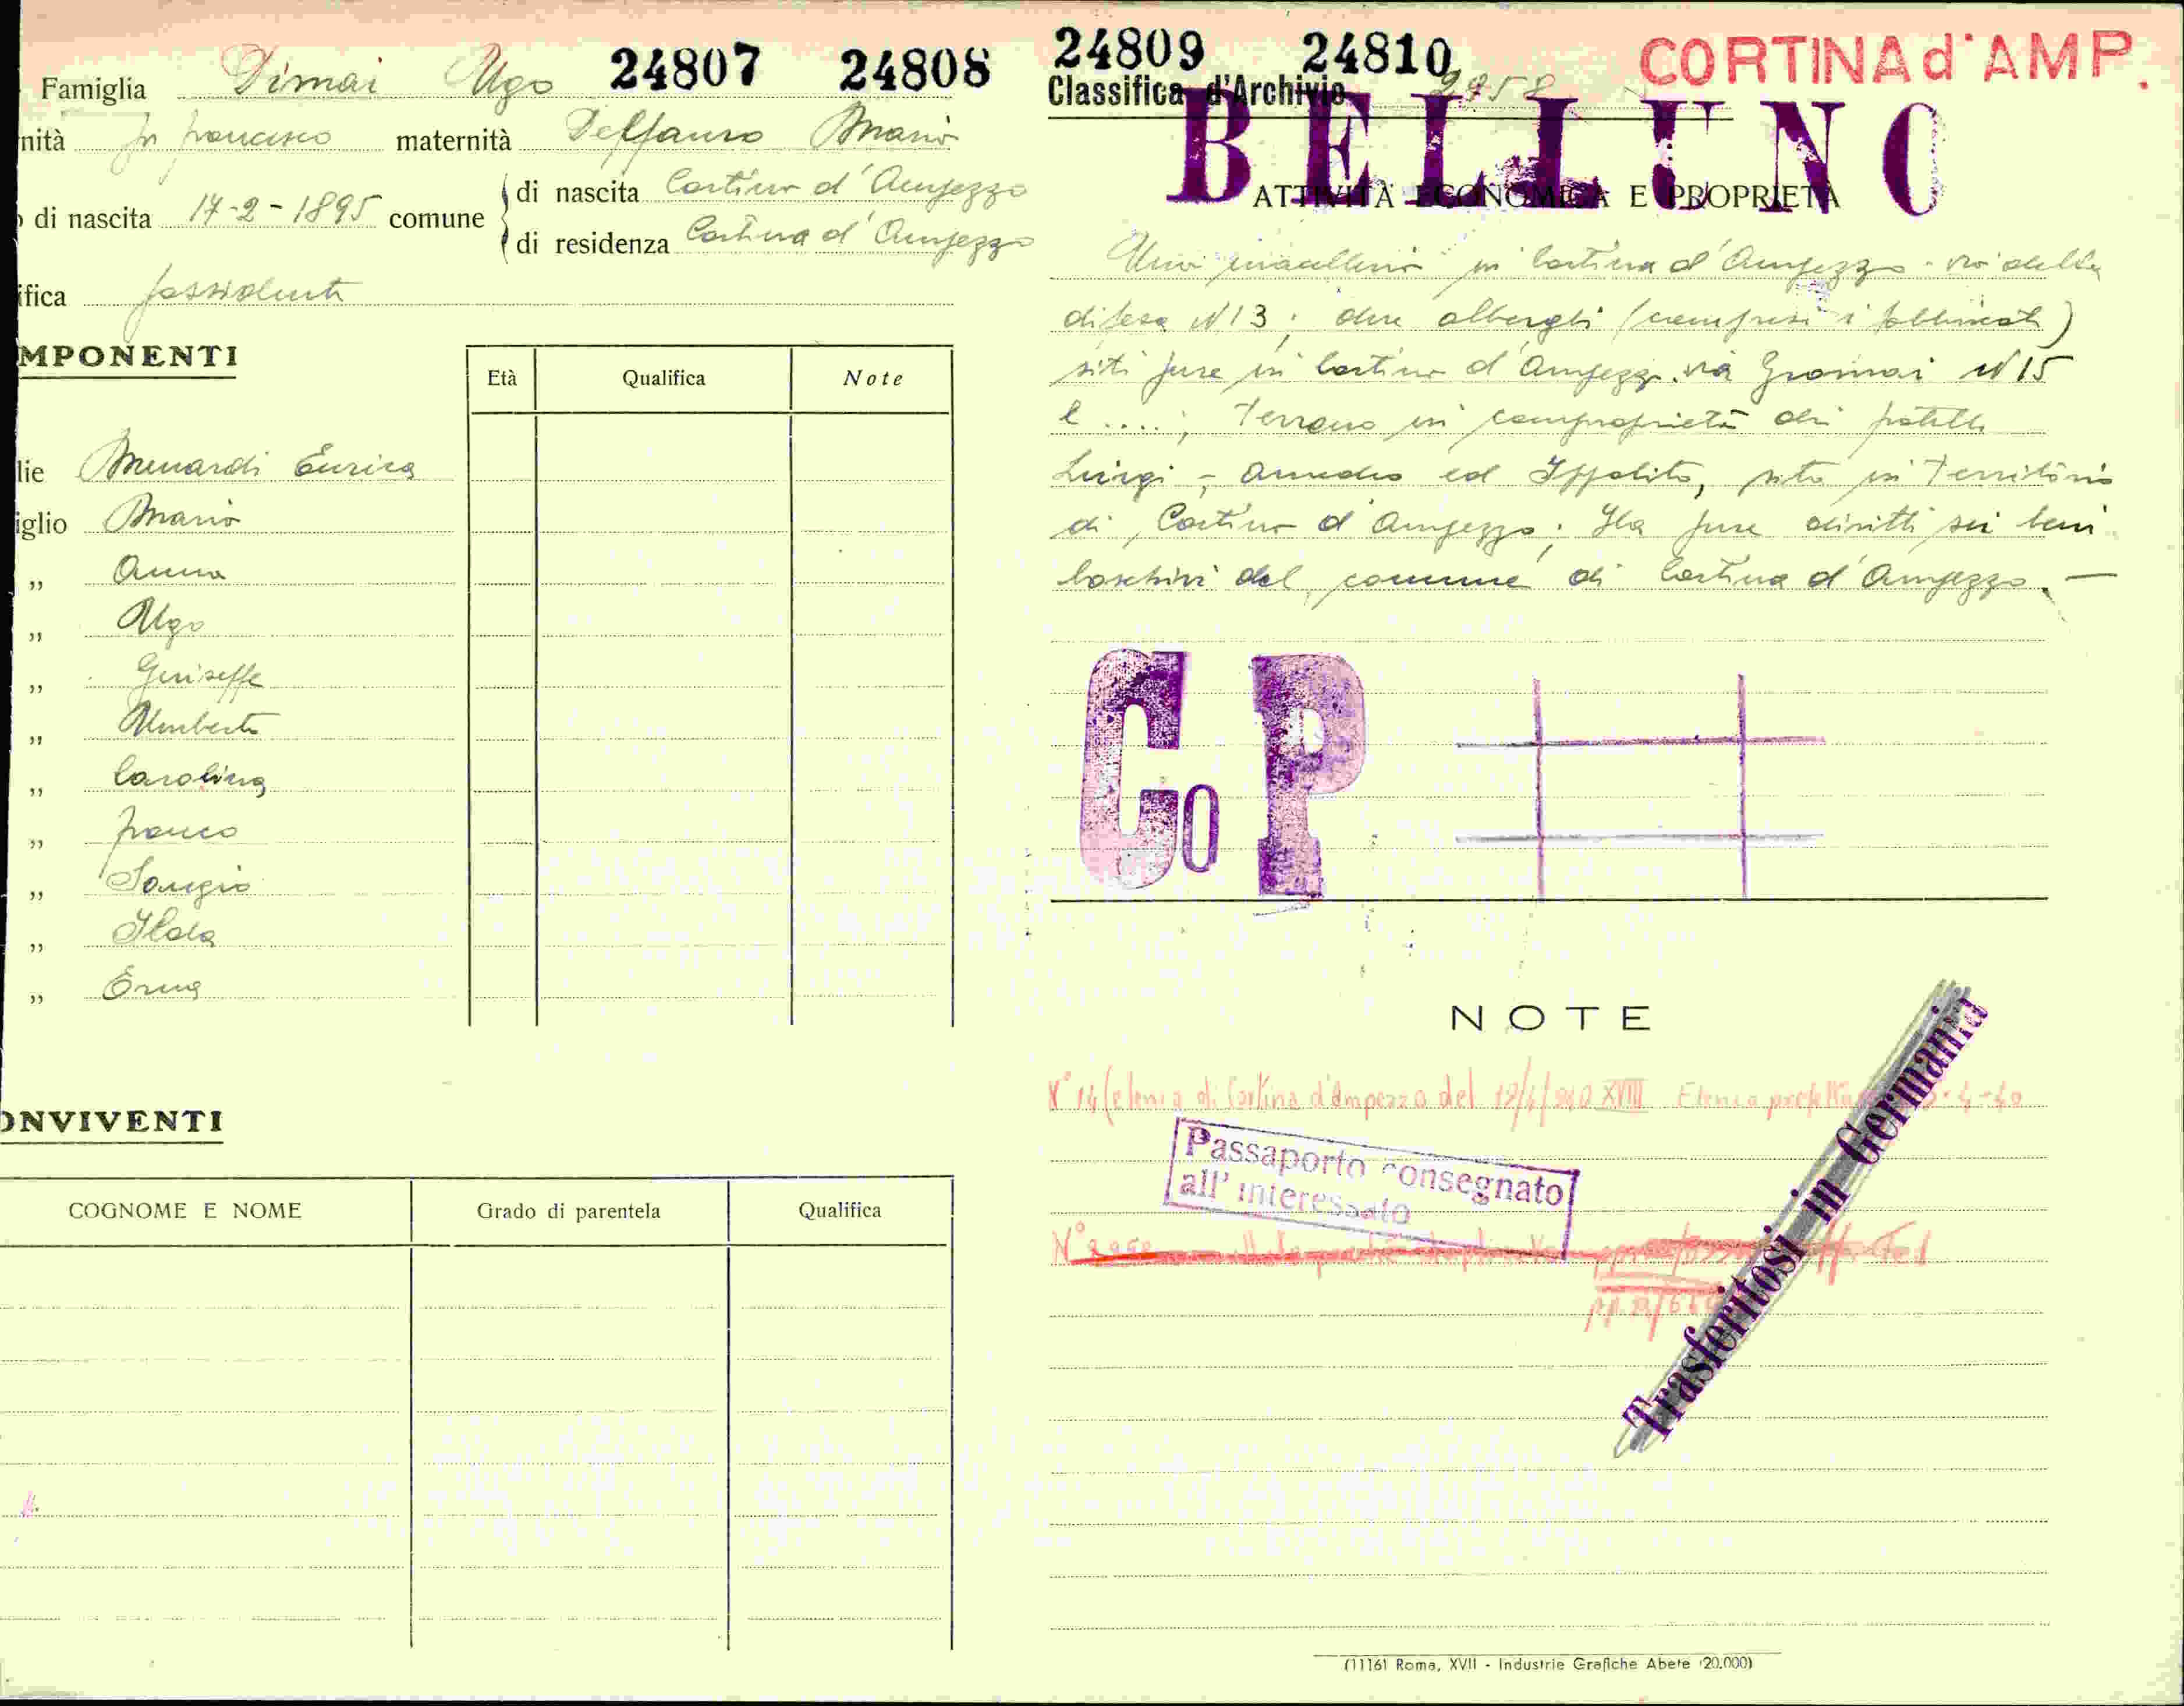 Famiglia Dimai Ugo 24807 24808
nità fu Francesco maternità Delfauro Maria
di nascita 17-2-1895 comune
di nascita Cortina d'Ampezzo
di residenza Cortina d'Ampezzo
ifica possidente
MPONENTI
Età Qualifica Note
lie Menardi Enrica
iglio Mario
„ Anna
„ Ugo
„ Giuseppe
„ Umberto
„ Carolina
„ Franco
„
„ Ilda
„ Erna
ONVIVENTI
COGNOME E NOME Grado di parentela Qualifica
24809 24810 CORTINA d'AMP.
Classifica d'Archivio 2958
BELLUNO
ATTIVITÀ ECONOMICA E PROPRIETÀ
Una macelleria in Cortina d'Ampezzo - via della
difesa N 13; due alberghi (compresi i fabbricati)
siti pure in Cortina d'Ampezzo via N 15
e ....; Terreno in comproprietà dei fratelli
Luigi - Amedeo ed Ippolito, sito in Territorio
di Cortina d'Ampezzo; Ha pure diritti sui beni
boschivi del comune di Cortina d'Ampezzo. —
Co P
NOTE
N° 14 Cortina d'Ampezzo del XVIII Elenco 4-40
Passaporto consegnato
all'interessato
N°
Trasferitosi in Germania
(11161 Roma, XVII - Industrie Grafiche Abete 20.000)